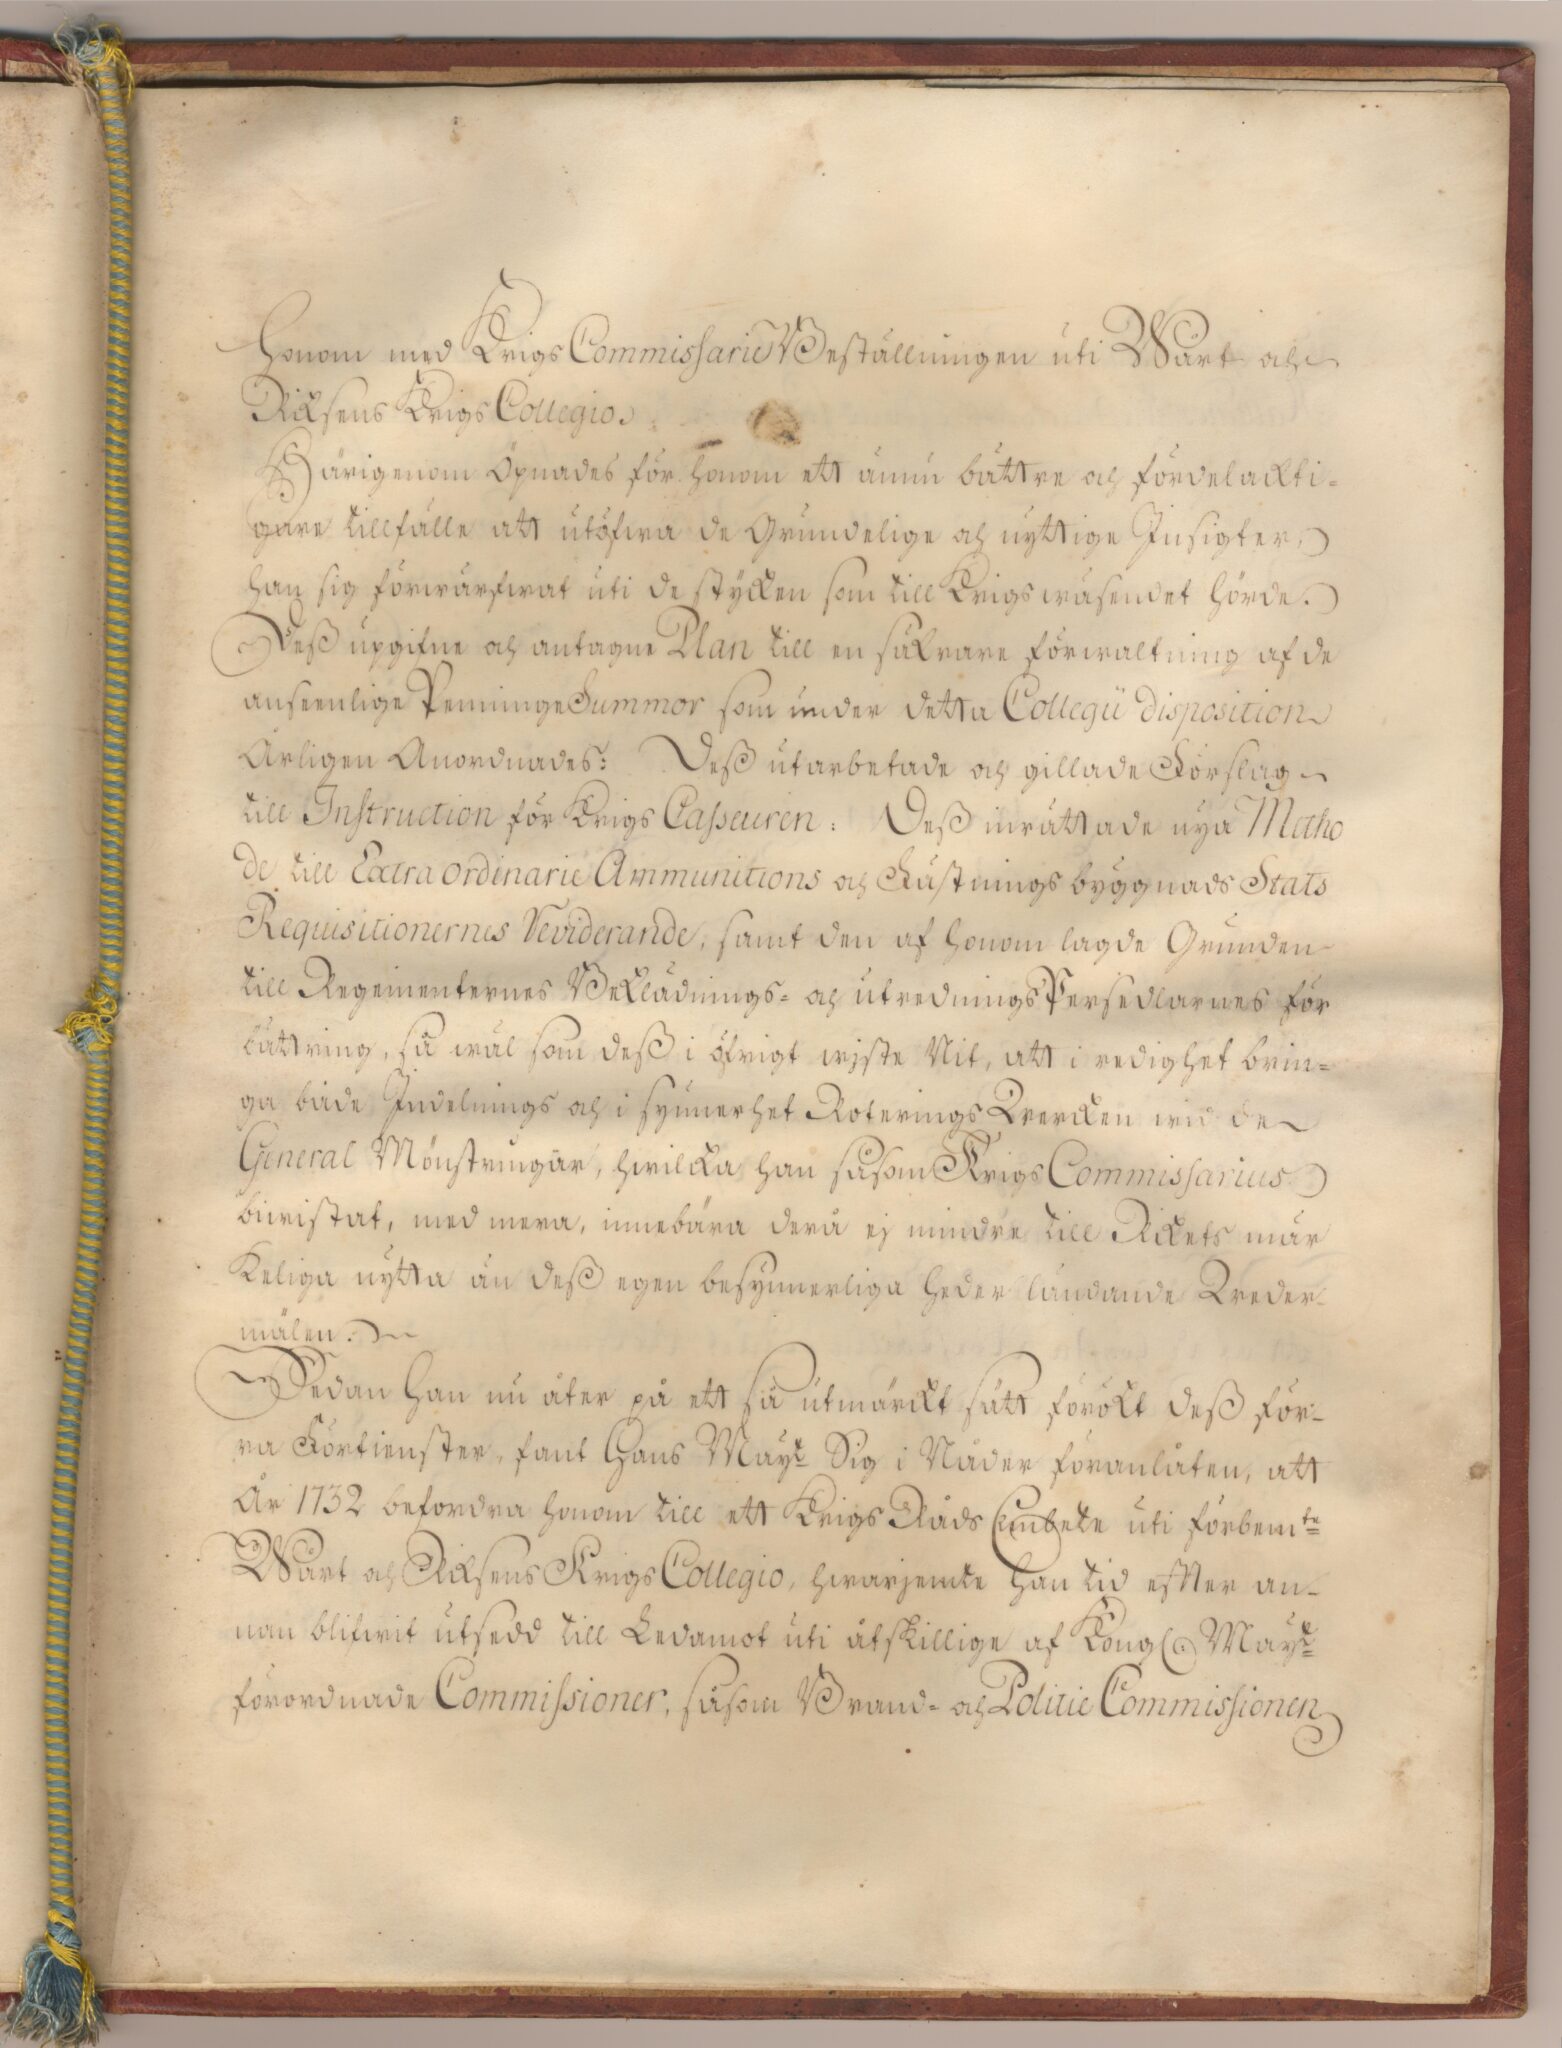 honom med Krigs Commissarie Beställningen uti Wårt och
Riksens Krigs Collegio.
Härigenom Öpnades för honom ett ännu bättre och fördelackti-
gare tillfälle att utöfwa de Grundelige och nyttige Insigter,
han sig förwärfwat uti de stycken som till Krigswäsendet hörde.
Deß upgifne och antagne Plan till en säkrare förwaltning af de
anseenlige Penninge Summor som under detta Collegii disposition
Årligen Anordnades: Deß utarbetade och gillade Förslag
till Instruction för Krigs Casseuren: Deß inrättade nya Metho
de till Extra ordinarie Ammunitions och Fästningsbyggnads Stats
Requisitionernes Reviderande, samt den af honom lagde Grunden
till Regementernes Beklädnings- och utrednings Persedlarnes för
bättring, så wäl som deß i öfrigt wiste Nit, att i redighet brin-
ga både Indelnings och i synnerhet Roterings Wercken wid de
General Mönstringar, hwilcka han såsom Krigs Commissarius
biwistat, med mera, innebära derå ej mindre till Rikets mär
keliga nytta än deß egen besynnerliga heder ländande Wedер-
mälen.
Sedan han nu åter på ett så utmärckt sätt förökt deß för-
ra Förtienster, fant Hans Mayt Sig i Nåder föranlåten, att
År 1732 befordra honom till ett Krigs Råds Embete uti förbemte
Wårt och Riksens Krigs Collegio, hwarjemte han tid efter an-
nan blifwit utsedd till Ledamot uti åtskillige af Kongl. Mayt
förordnade Commissioner, såsom Brand- och Politie Commissionen